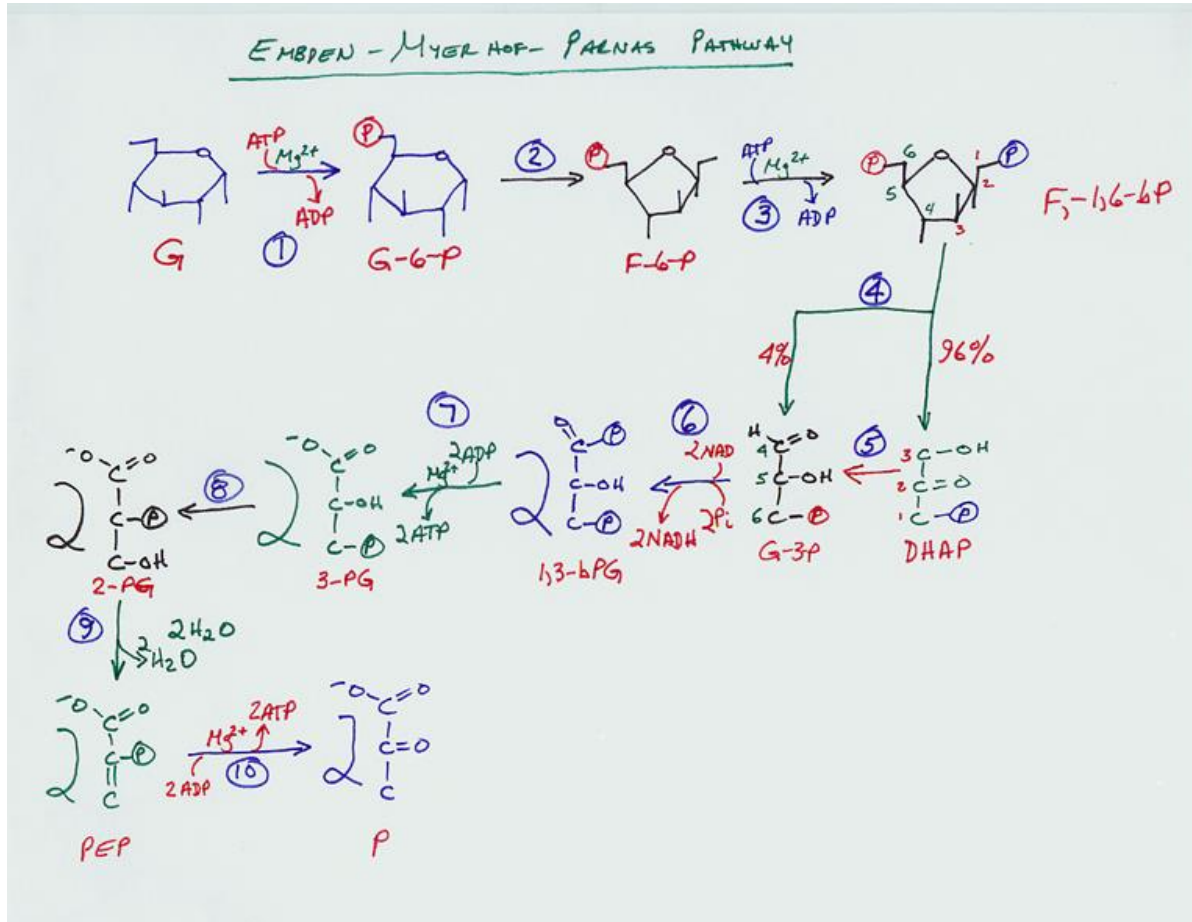 EMBDEN-MYERHOF-PARNAS PATHWAY
ATP
Mg2+
ADP
①
G
P
G-6-P
②
P
F-6-P
ATP
Mg2+
ADP
③
P
6
5
4
3
2
1
P
F-1,6-bP
④
4%
96%
3 C-OH
2 C=O
1 C-P
DHAP
⑤
H
4 C=O
5 C-OH
6 C-P
G-3P
⑥
2NAD
2Pi
2NADH
O
C-P
C-OH
C-P
2
1,3-bPG
⑦
2ADP
Mg2+
2ATP
-O C=O
C-OH
C-P
2
3-PG
⑧
-O C=O
C-P
C-OH
2
2-PG
⑨
2H2O
2
H2O
-O C=O
C-P
C
2
PEP
2ATP
Mg2+
2ADP
⑩
-O C=O
C=O
C
2
P